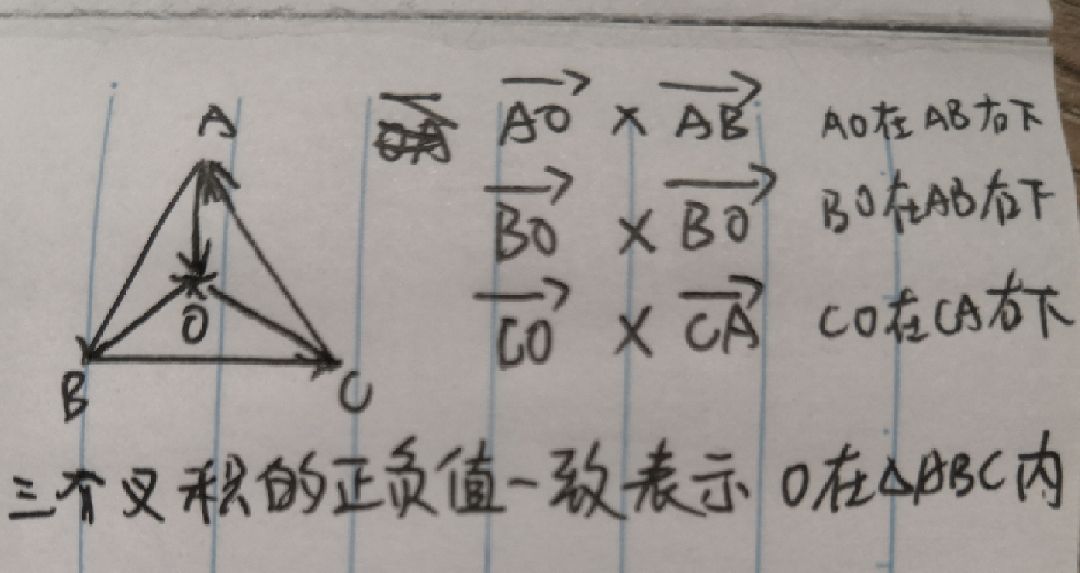 A
O
B
C
AO × AB AO在AB右下
BO × BO BO在AB右下
CO × CA CO在CA右下
三个叉积的正负值一致表示 O在△ABC内